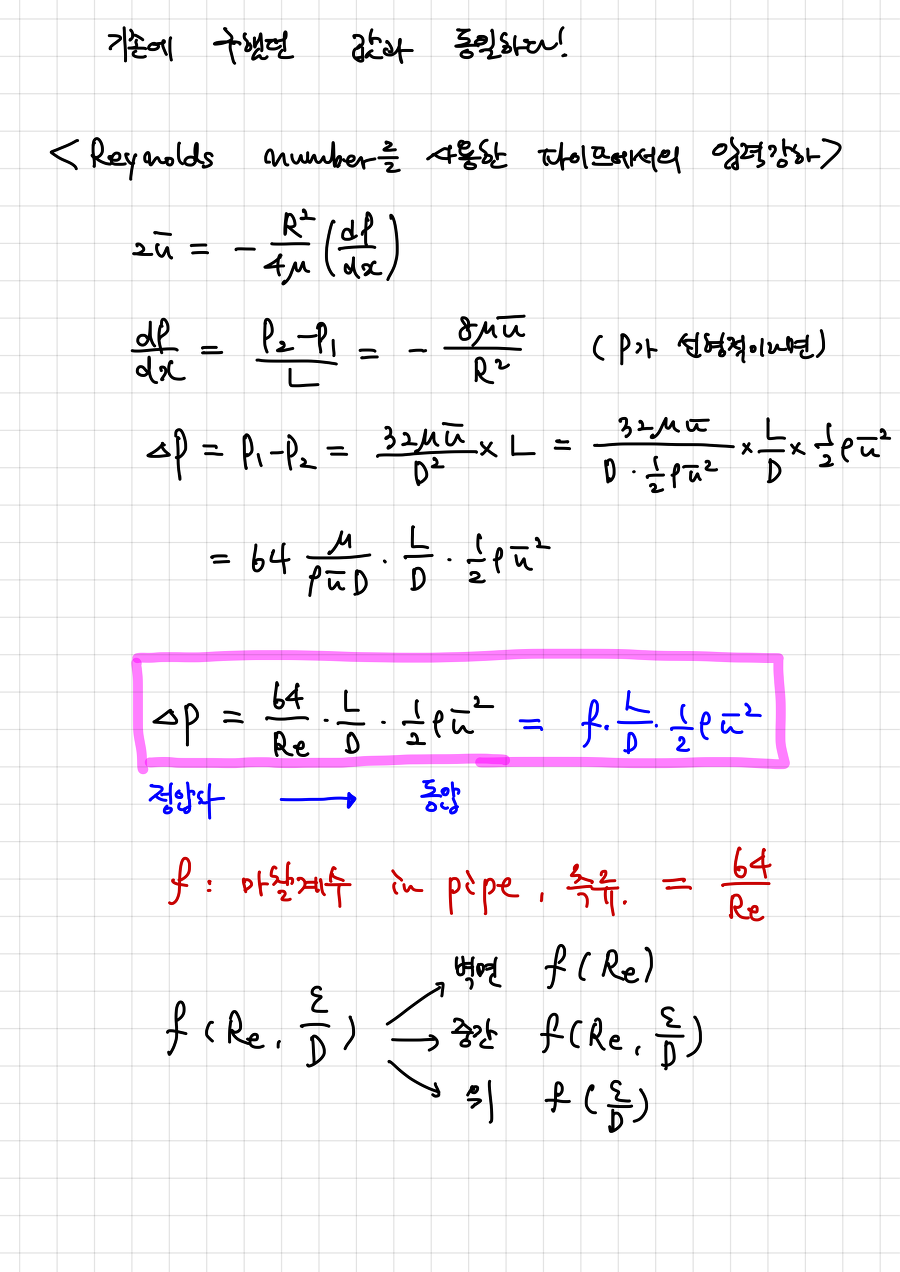 기존에 구했던 값과 동일하다!
< Reynolds number를 사용한 파이프에서의 압력강하 >
2ū = - R²/4μ (dP/dx)
dP/dx = (P₂-P₁)/L = - 8μū/R² (P가 선형적이라면)
ΔP = P₁-P₂ = 32μū/D² × L = 32μū/(D · ½ρū²) × L/D × ½ρū²
= 64 μ/(ρūD) · L/D · ½ρū²
ΔP = 64/Re · L/D · ½ρū² = f · L/D · ½ρū²
정압차 → 동압
f : 마찰계수 in pipe, 층류. = 64/Re
f(Re, ε/D)
벽면 f(Re)
중간 f(Re, ε/D)
외 f(ε/D)